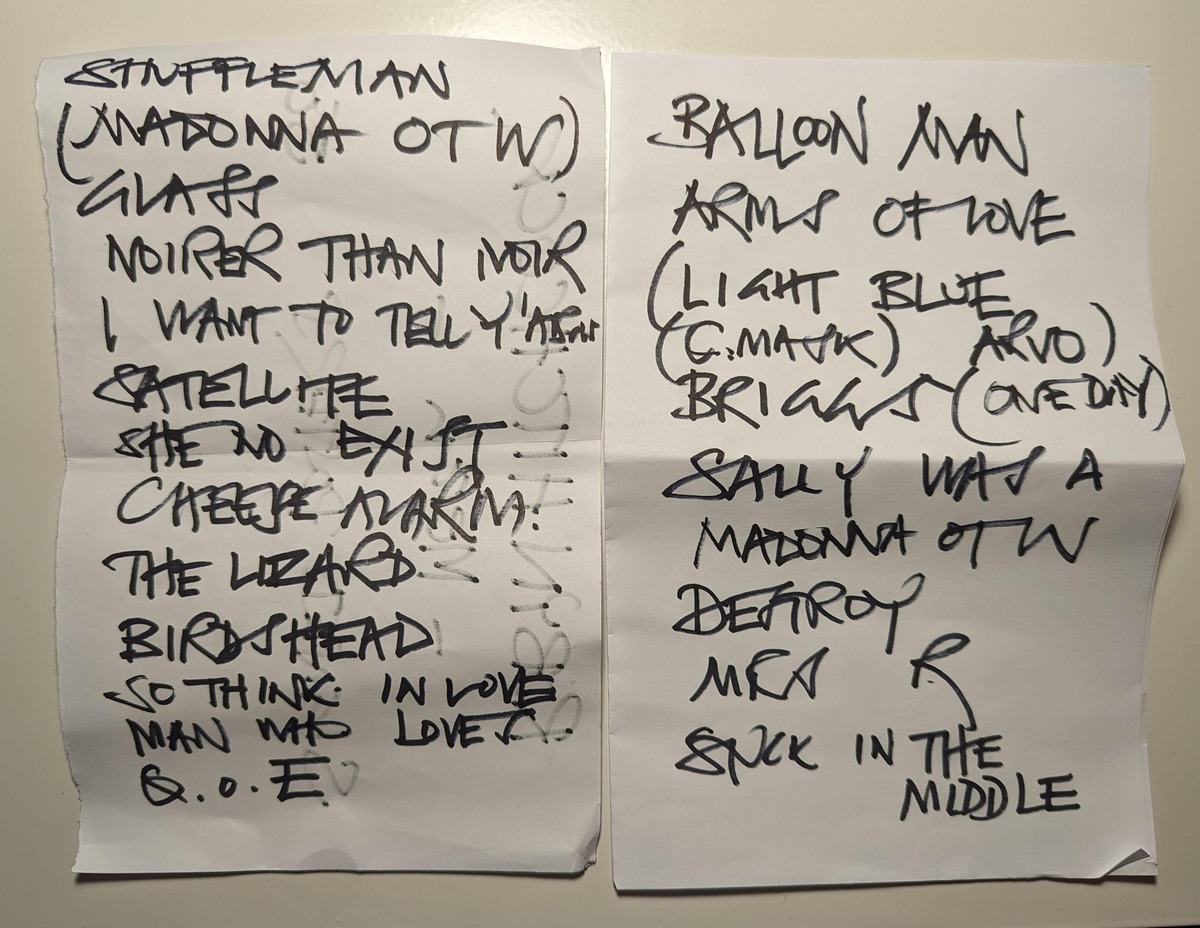 STUFFLEMAN
(MADONNA OTW)
GLASS
NOIRER THAN NOIR
I WANT TO TELL Y' ABOUT
SATELLITE
SHE NO EXIST
CHEESE ALARM.
THE LIZARD
BIRDSHEAD
SO THINK. IN LOVE
MAN WHO LOVES
Q.O.E
BALLOON MAN
ARMS OF LOVE
(LIGHT BLUE
(C.MASK) ARVO)
BRIGGS (ONE DAY)
SALLY WAS A
MADONNA OTW
DESTROY
MRS R
STUCK IN THE
MIDDLE